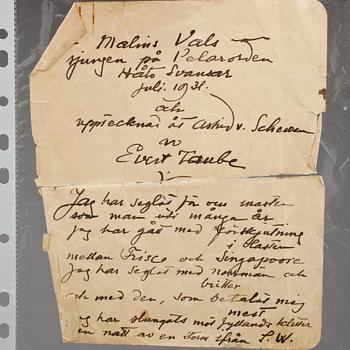 Malins Vals
sjungen på Pelarorden
Håtö Svansar
juli 1931.
och
upptecknad åt Astrid v. Schewen
av
Evert Taube
Jag har seglat för om masten
som man uti många år
jag har gått med förskjutning
i lasten
mellan Frisco och Singapoore
jag har seglat med norrmän och
britter
och med den, som betalt mig
mest
jag har slungats mot jyllands klitter
en natt av en storm ifrån S.W.